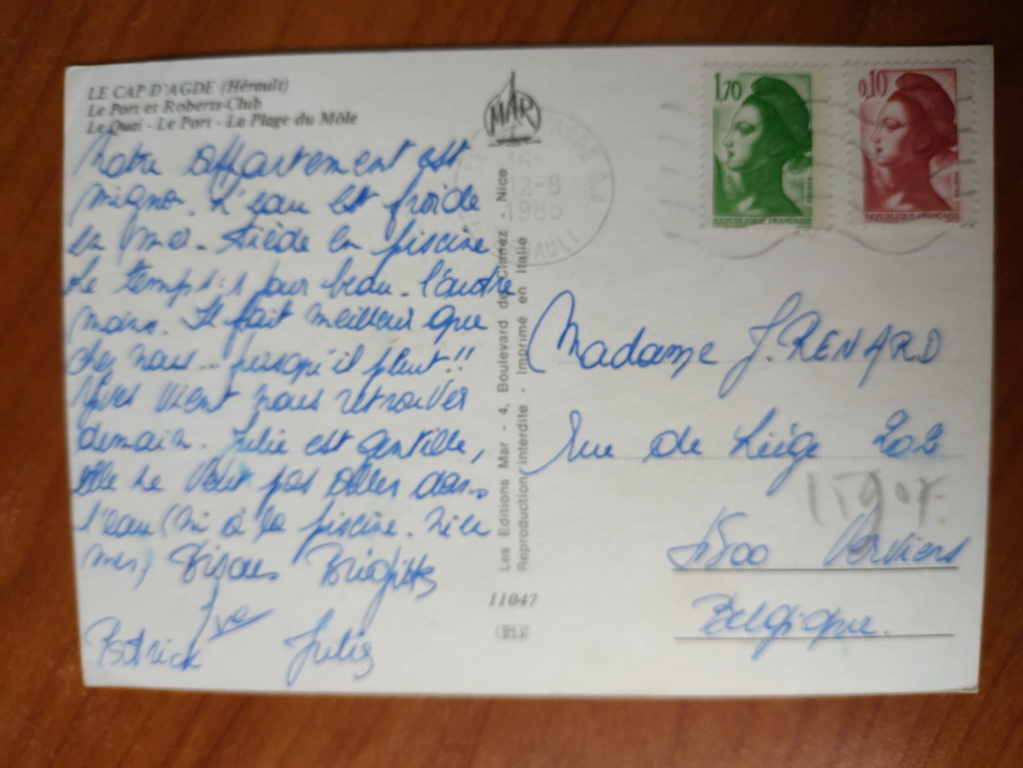 LE CAP D'AGDE (Hérault)
Le Port et Roberts-Club
Le Quai - Le Port - La Plage du Môle
Notre appartement est
mignon. L'eau est froide
en mer. tiède en piscine
Le temps : 1 jour beau. l'autre
moins. Il fait meilleur que
chez nous... puisqu'il pleut !!
Yves vient nous retrouver
demain. Julie est gentille,
elle ne veut pas aller dans
l'eau (ni à la piscine. ni la
mer) Bisous Brigitte
Patrick Julie
MAR
Les Editions Mar - 4, Boulevard de Cimez - Nice
Reproduction interdite - Imprimé en Italie
11047
12-8
1985
1,70
REPUBLIQUE FRANÇAISE
0,10
REPUBLIQUE FRANÇAISE
Madame J. RENARD
Rue de Liège 202
4800 Verviers
Belgique.